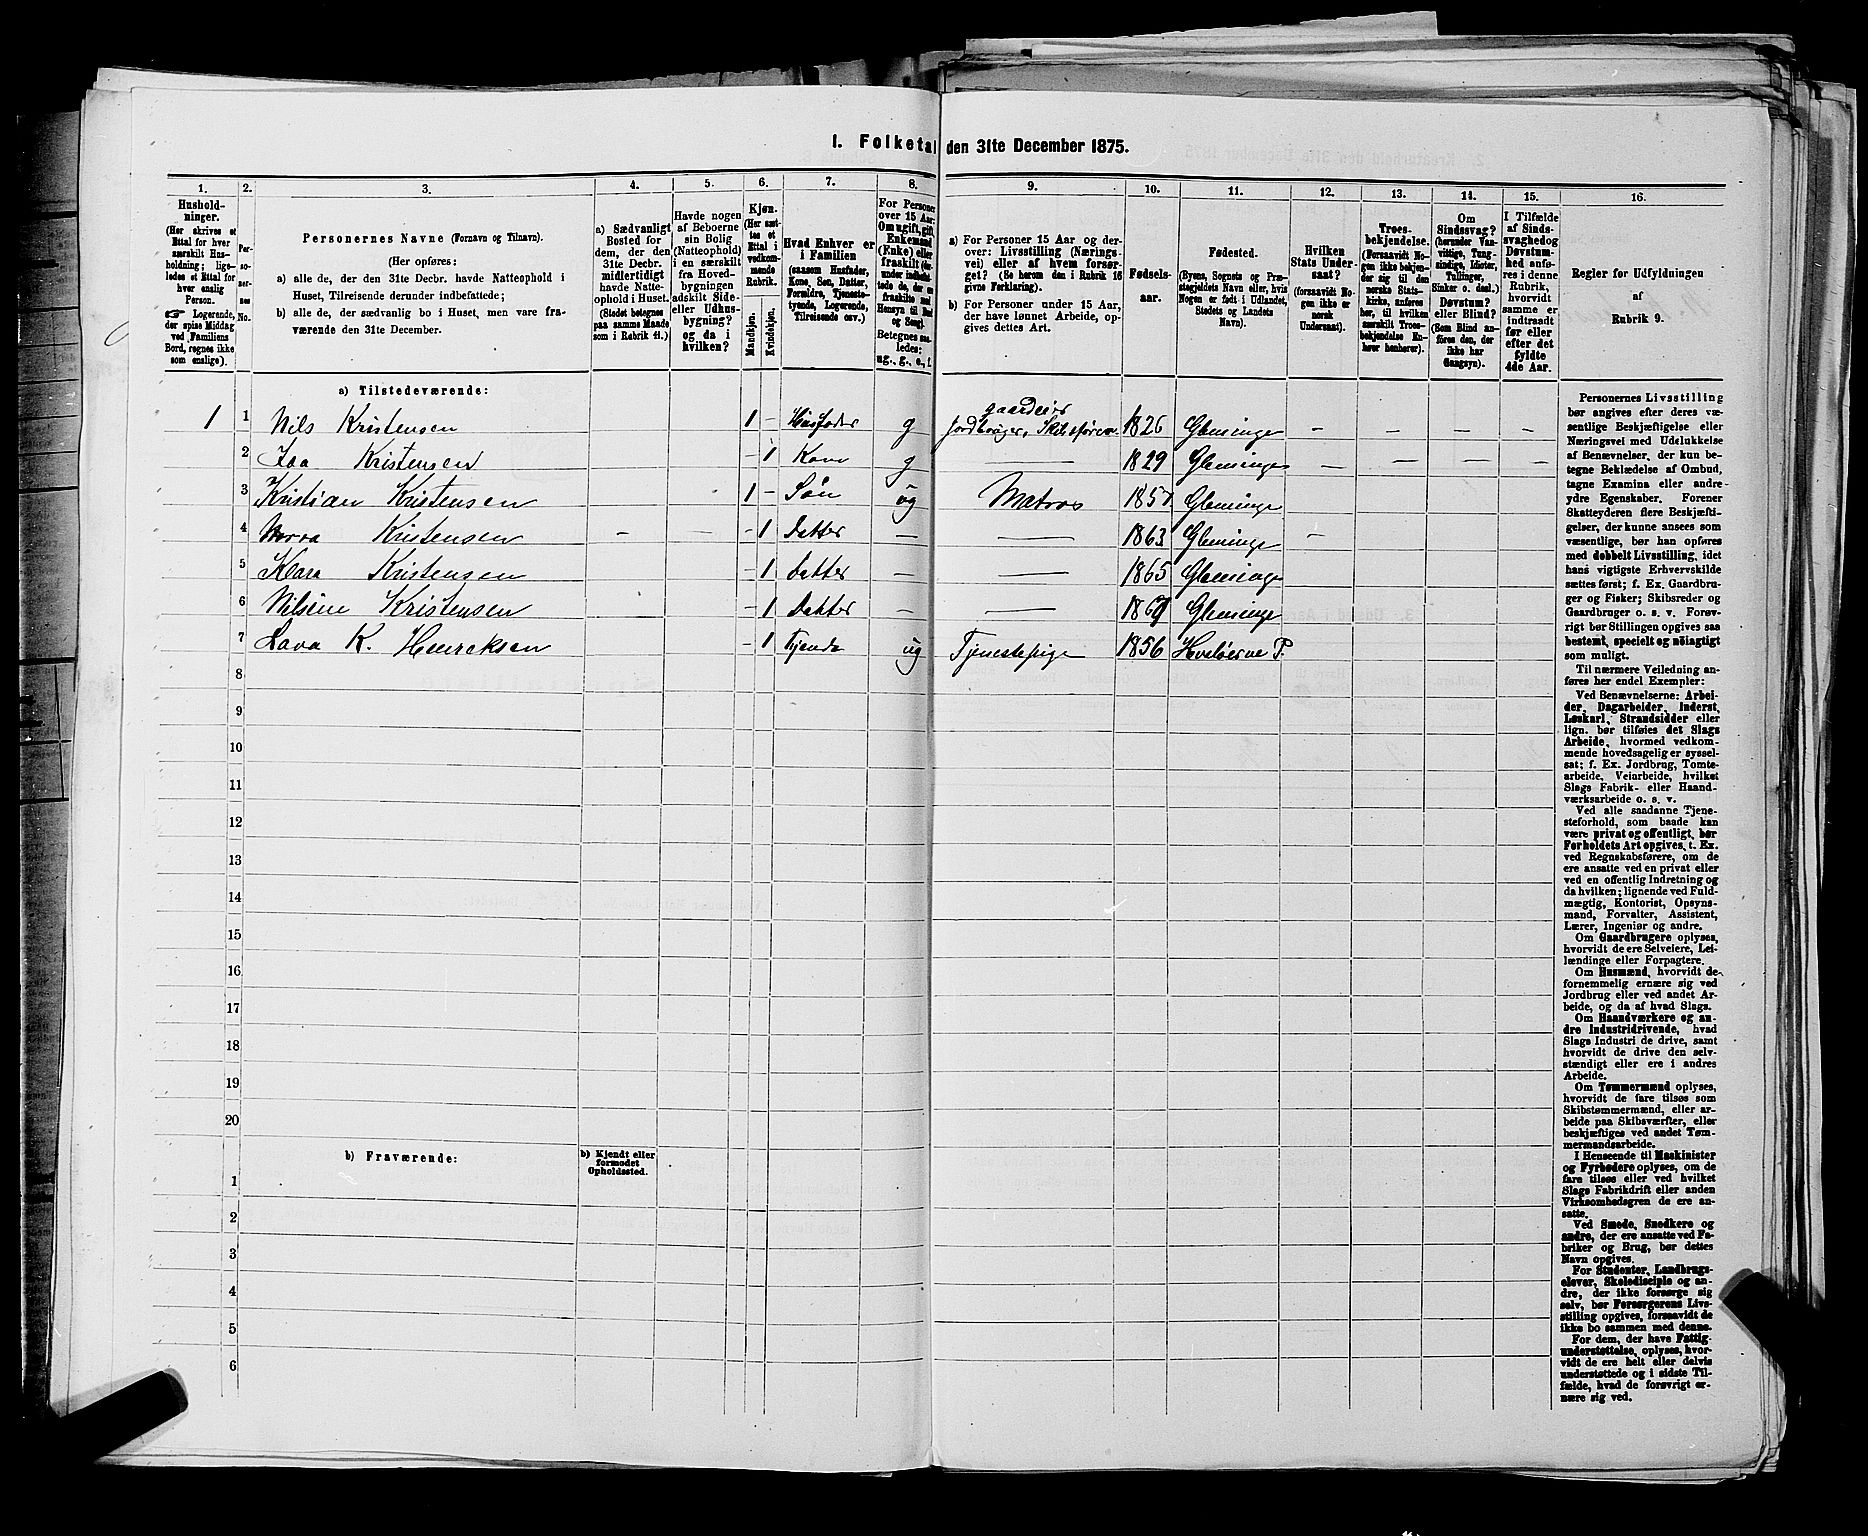 1. Folketal den 31te December 1875.
1. 2. 3. 4. 5. 6. 7. 8. 9. 10. 11. 12. 13. 14. 15. 16.
Hushold-
ninger.
(Her skrives et
Ettal for hver
særskilt Hus-
holdning; lige-
ledes et Ettal for
hver enslig
Person.
☞ Logerende,
der spise Middag
ved Familiens
Bord, regnes ikke
som enslige).
Per-
so-
ner-
nes
No.
Personernes Navne (Fornavn og Tilnavn).
(Her opføres:
a) alle de, der den 31te Decbr. havde Natteophold i
Huset, Tilreisende derunder indbefattede;
b) alle de, der sædvanlig bo i Huset, men vare fra-
værende den 31te December.
a) Sædvanligt
Bosted for
dem, der den
31te Decbr.
midlertidigt
havde Natte-
ophold i Huset.
(Stedet betegnes
paa samme Maade
som i Rubrik 11.)
Havde nogen
af Beboerne
sin Bolig
(Natteophold)
i en særskilt
fra Hoved-
bygningen
adskilt Side-
eller Udhus-
bygning?
og da i
hvilken?
Kjøn.
(Her sæt-
tes et
Ettal i
vedkom-
mende
Rubrik.
Mandkjøn.
Kvindekjøn.
Hvad Enhver er
i Familien
(saasom Husfader,
Kone, Søn, Datter,
Forældre, Tjeneste-
tyende, Logerende,
Tilreisende osv.)
For Personer
over 15 Aar:
Om ugift, gift,
Enkemand
(Enke) eller
fraskilt
ug., g., e., f.
a) For Personer 15 Aar og der-
over: Livsstilling (Nærings-
vei) eller af hvem forsør-
get? (Se herom den i Rubrik 16
givne Forklaring).
b) For Personer under 15 Aar,
der have lønnet Arbeide, op-
gives dettes Art.
Fødsels-
aar.
Fødested.
(Byens, Sognets og Præ-
stegjeldets Navn eller, hvis
Nogen er født i Udlandet,
Stedets og Landets
Navn).
Hvilken
Stats Under-
saat?
(forsaavidt No-
gen ikke er
norsk
Undersaat).
Troes-
bekjendelse.
(Forsaavidt No-
gen ikke bekjen-
der sig til den
norske Stats-
kirke, anføres
her, til hvilken
særskilt Troes-
bekjendelse En-
hver henhører).
Om
Sindssvag?
(herunder Van-
vittige, Tung-
sindige, Idioter,
Tullinger,
Sinker o. desl.)
Døvstum?
eller Blind?
(Som Blind an-
føres den, der
ikke har
Gangsyn).
I Tilfælde
af Sinds-
svaghed og
Døvstum-
hed anfø-
res i denne
Rubrik,
hvorvidt
samme er
indtraadt
før eller
efter det
fyldte
4de Aar.
Regler for Udfyldningen
af
Rubrik 9.
a) Tilstedeværende:
gaardeier
1 1 Nils Kristensen 1 – Husfader g Jordbruger, Skibsfører 1826 Gleminge – – – –
2 Ida Kristensen – 1 Kone g — 1829 Gleminge – – – –
3 Kristian Kristensen 1 – Søn ug Matros 1857 Gleminge
4 Kristensen – – – 1 Datter – — 1863 Gleminge –
5 Klara Kristensen – 1 Datter – — 1865 Gleminge
6 Nilsine Kristensen – 1 Datter – — Gleminge
7 K. Henreksen – 1 Tjende ug Tjenestepige 1856 Hvaløerne P.
8
9
10
11
12
13
14
15
16
17
18
19
20
b) Fraværende:
b) Kjendt eller
formodet
Opholdssted.
1
2
3
4
5
6
Personernes Livsstilling
bør angives efter deres væ-
sentlige Beskjæftigelse eller
Næringsvei med Udelukkelse
af Benævnelser, der kun be-
tegne Beklædelse af Ombud,
tagne Examina eller andre
ydre Egenskaber. Forener
Skatteyderen flere Beskjæfti-
gelser, der kunne ansees som
væsentlige, bør han opføres
med dobbelt Livsstilling, idet
hans vigtigste Erhvervskilde
sættes først; f. Ex. Gaardbru-
ger og Fisker; Skibsreder og
Gaardbruger o. s. v. Forøv-
rigt bør Stillingen opgives saa
bestemt, specielt og nøiagtigt
som muligt.
Til nærmere Veiledning an-
føres her endel Exempler:
Ved Benævnelserne: Arbei-
der, Dagarbeider, Inderst,
Løskarl, Strandsidder eller
lign. bør tilføies det Slags
Arbeide, hvormed vedkom-
mende hovedsagelig er syssel-
sat; f. Ex. Jordbrug, Tomte-
arbeide, Veiarbeide, hvilket
Slags Fabrik- eller Haand-
værksarbeide o. s. v.
Ved alle saadanne Tjene-
steforhold, som baade kan
være privat og offentligt, bør
Forholdets Art opgives, f. Ex.
ved Regnskabsførere, om de
ere ansatte ved en privat eller
ved en offentlig Indretning og
da hvilken; lignende ved Fuld-
mægtig, Kontorist, Opsyns-
mand, Forvalter, Assistent,
Lærer, Ingeniør og andre.
Om Gaardbrugere oplyses,
hvorvidt de ere Selveiere, Lei-
lændinge eller Forpagtere.
Om Husmænd, hvorvidt de
fornemmelig ernære sig ved
Jordbrug eller ved andet Ar-
beide, og da af hvad Slags.
Om Haandværkere og an-
dre Industridrivende, hvad
Slags Industri de drive, samt
hvorvidt de drive den selv-
stændigt eller ere i andres
Arbeide.
Om Tømmermænd oplyses,
hvorvidt de fare tilsøs som
Skibstømmermænd, eller ar-
beide paa Skibsværfter, eller
beskjæftiges ved andet Tøm-
mermandsarbeide.
I Henseende til Maskinister
og Fyrbødere oplyses, om de
fare tilsøs eller ved hvilket
Slags Fabrikdrift eller anden
Virksomhedsgren de ere an-
satte.
Ved Smede, Snedkere og
andre, der ere ansatte ved Fa-
briker og Brug, bør dettes
Navn opgives.
For Studenter, Landbrugs-
elever, Skoledisciple og an-
dre, der ikke forsørge sig
selv, bør Forsørgerens Livs-
stilling opgives, forsaavidt de
ikke bo sammen med denne.
For dem, der have Fattig-
understøttelse, oplyses, hvor-
vidt de ere helt eller delvis
understøttede og i sidste Til-
fælde, hvad de forøvrigt er-
nære sig ved.